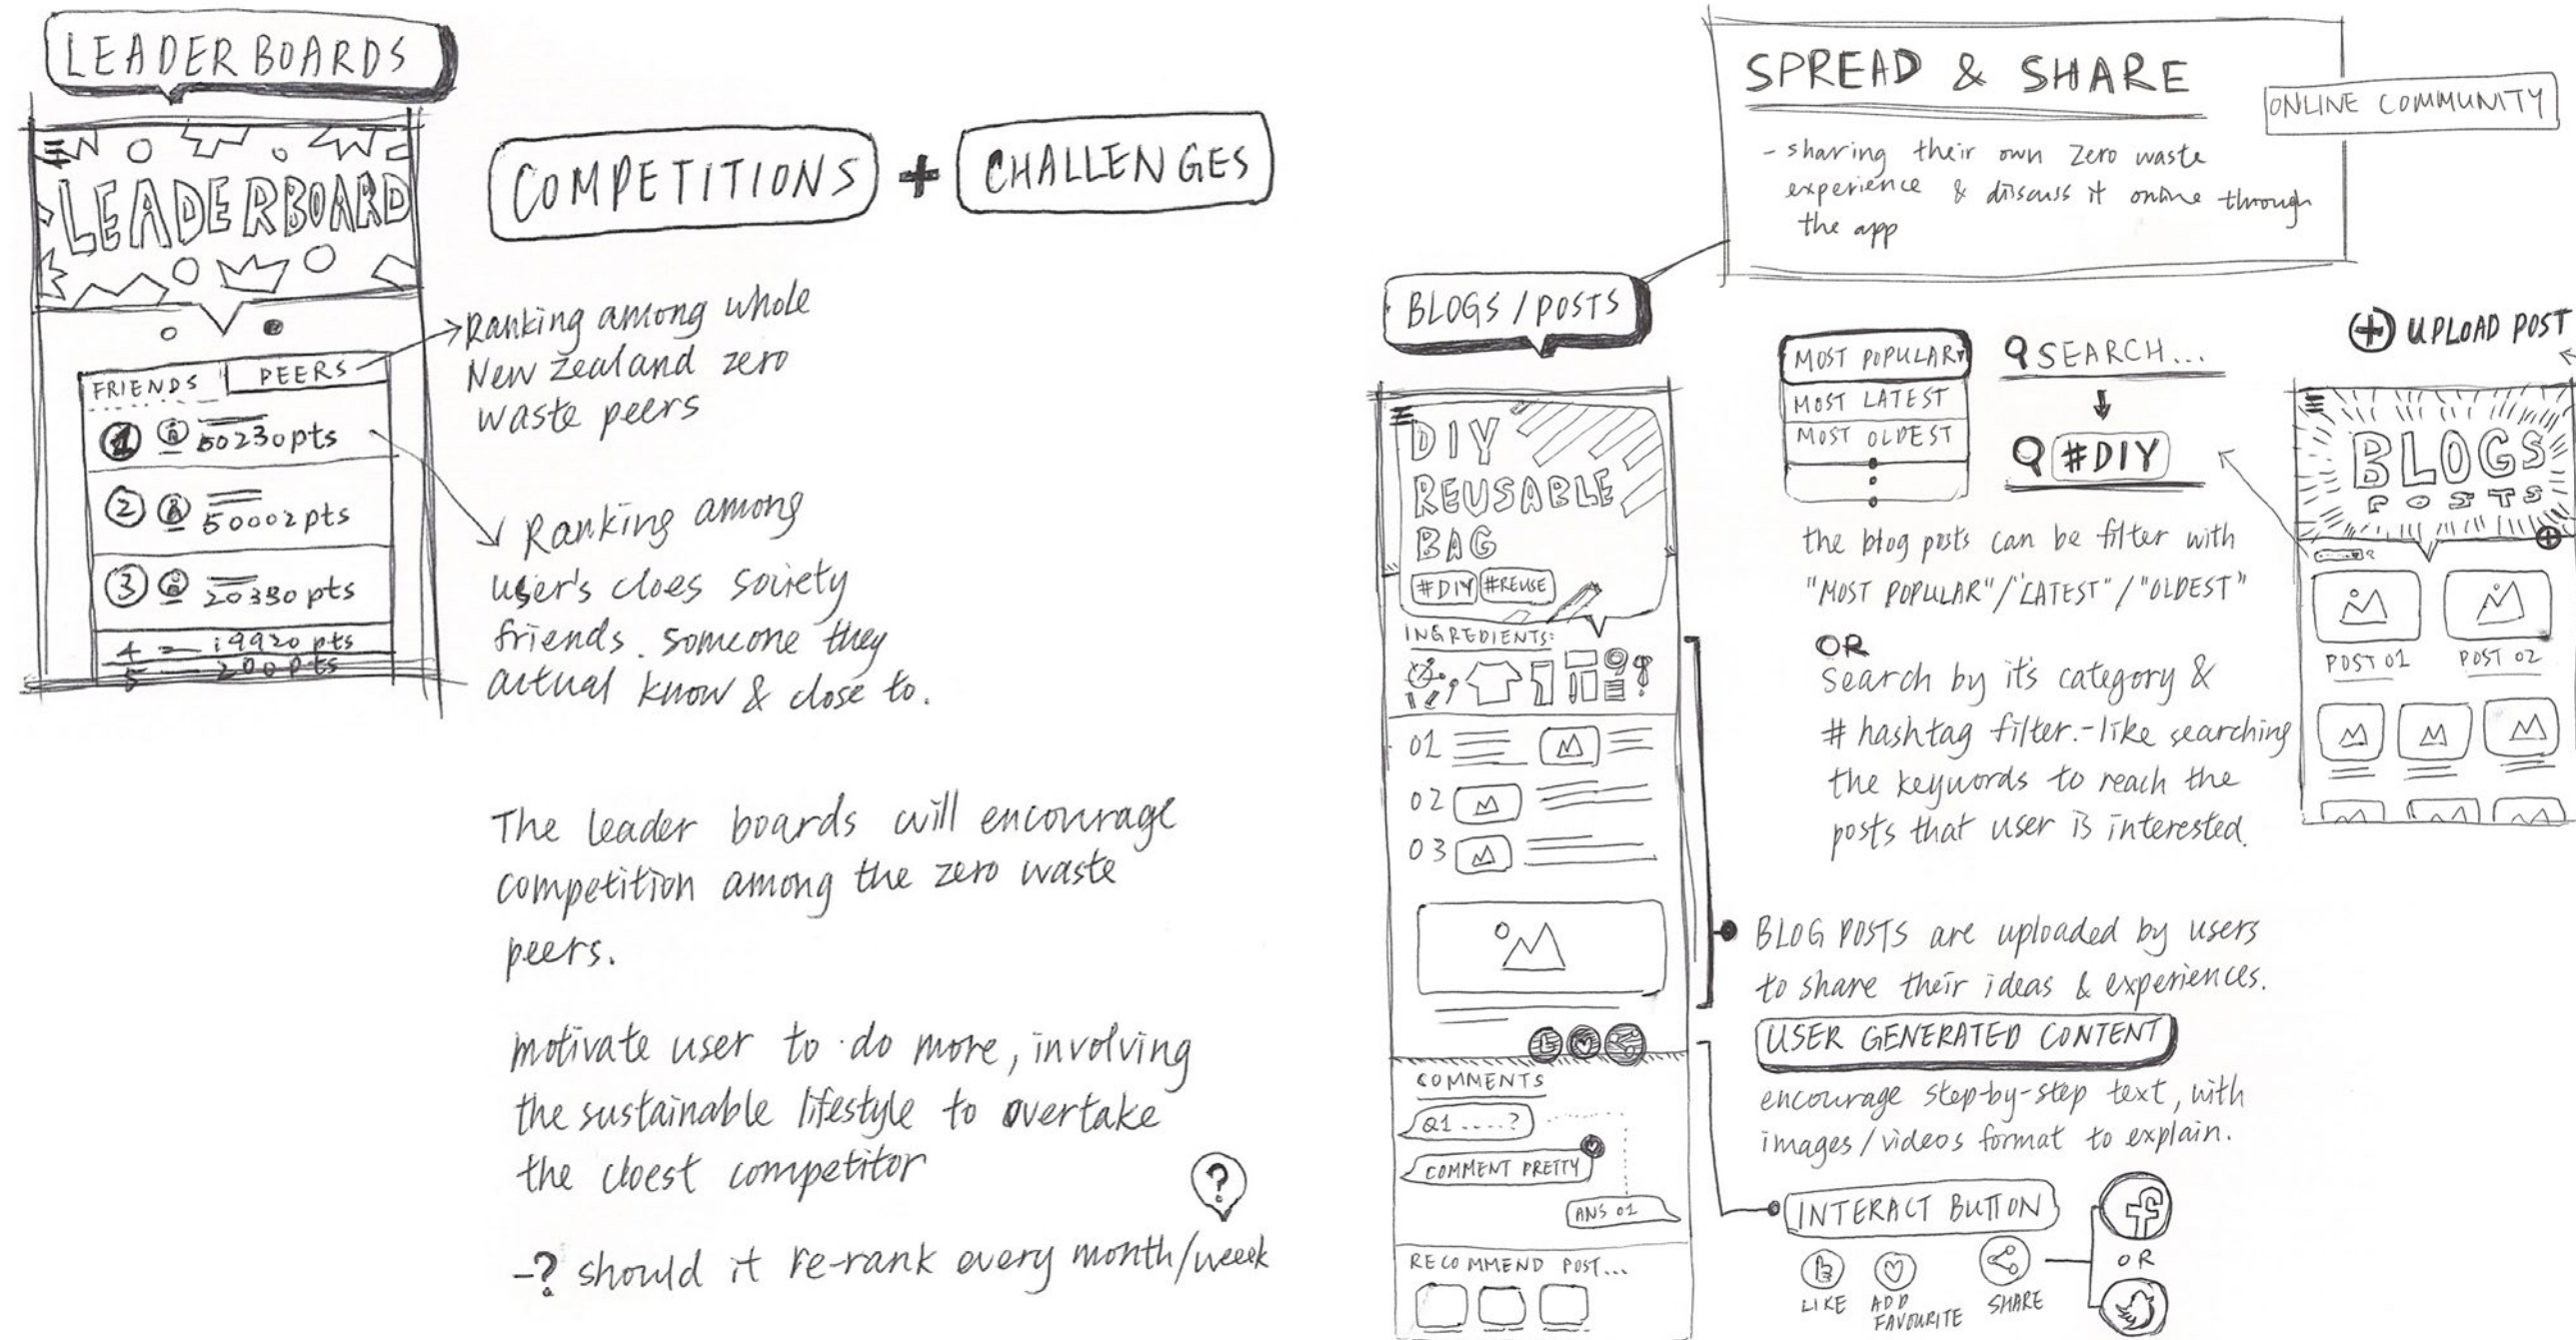 LEADERBOARDS
LEADERBOARD
FRIENDS
PEERS
1 50230pts
2 50002pts
3 20380pts
4 19920 pts
5 200pts
COMPETITIONS + CHALLENGES
Ranking among whole
New Zealand zero
waste peers
Ranking among
user's cloes society
friends. someone they
actual know & close to.
The leader boards will encourage
competition among the zero waste
peers.
motivate user to do more, involving
the sustainable lifestyle to overtake
the cloest competitor
?
-? should it re-rank every month/week
SPREAD & SHARE
ONLINE COMMUNITY
- sharing their own zero waste
experience & discuss it online through
the app
BLOGS / POSTS
DIY
REUSABLE
BAG
#DIY #REUSE
INGREDIENTS:
01
02
03
COMMENTS
Q1 ....?
COMMENT PRETTY
ANS 01
RECOMMEND POST...
MOST POPULAR
MOST LATEST
MOST OLDEST
SEARCH...
#DIY
the blog posts can be filter with
"MOST POPULAR"/"LATEST"/"OLDEST"
OR
Search by it's category &
# hashtag filter.-like searching
the keywords to reach the
posts that user is interested.
+ UPLOAD POST
BLOGS
POSTS
POST 01
POST 02
BLOG POSTS are uploaded by users
to share their ideas & experiences.
USER GENERATED CONTENT
encourage step-by-step text, with
images/videos format to explain.
INTERACT BUTTON
LIKE
ADD
FAVOURITE
SHARE
f
OR